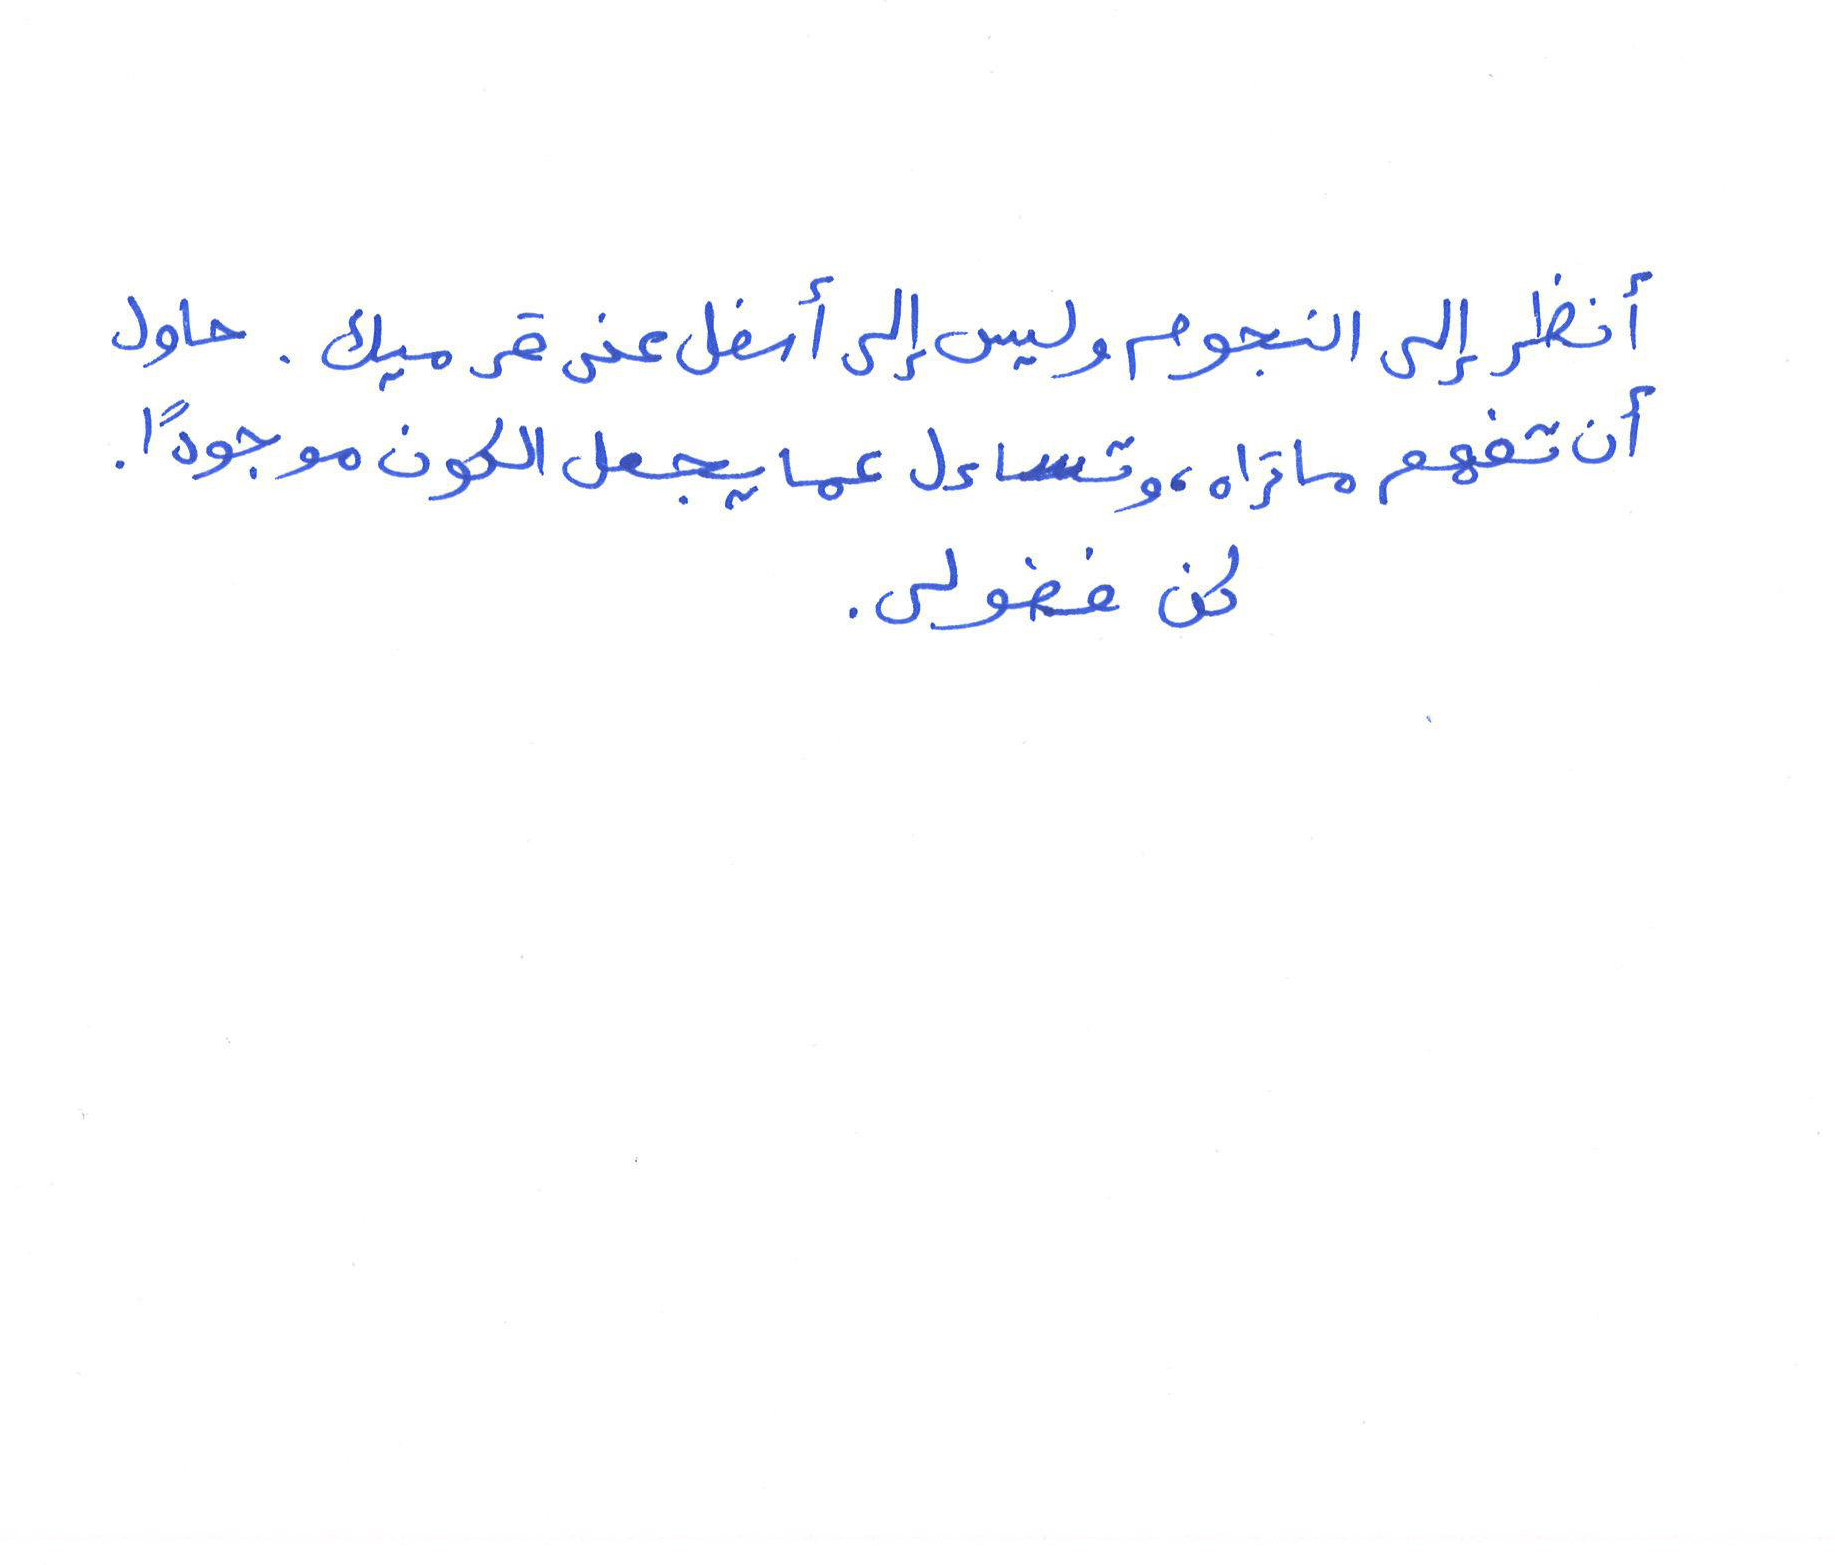 أنظر إلى النجوم وليس إلى أسفل عند قدميك . حاول
أن تفهم ما تراه ، وتساءل عما يجعل الكون موجودًا .
كن فضولى .